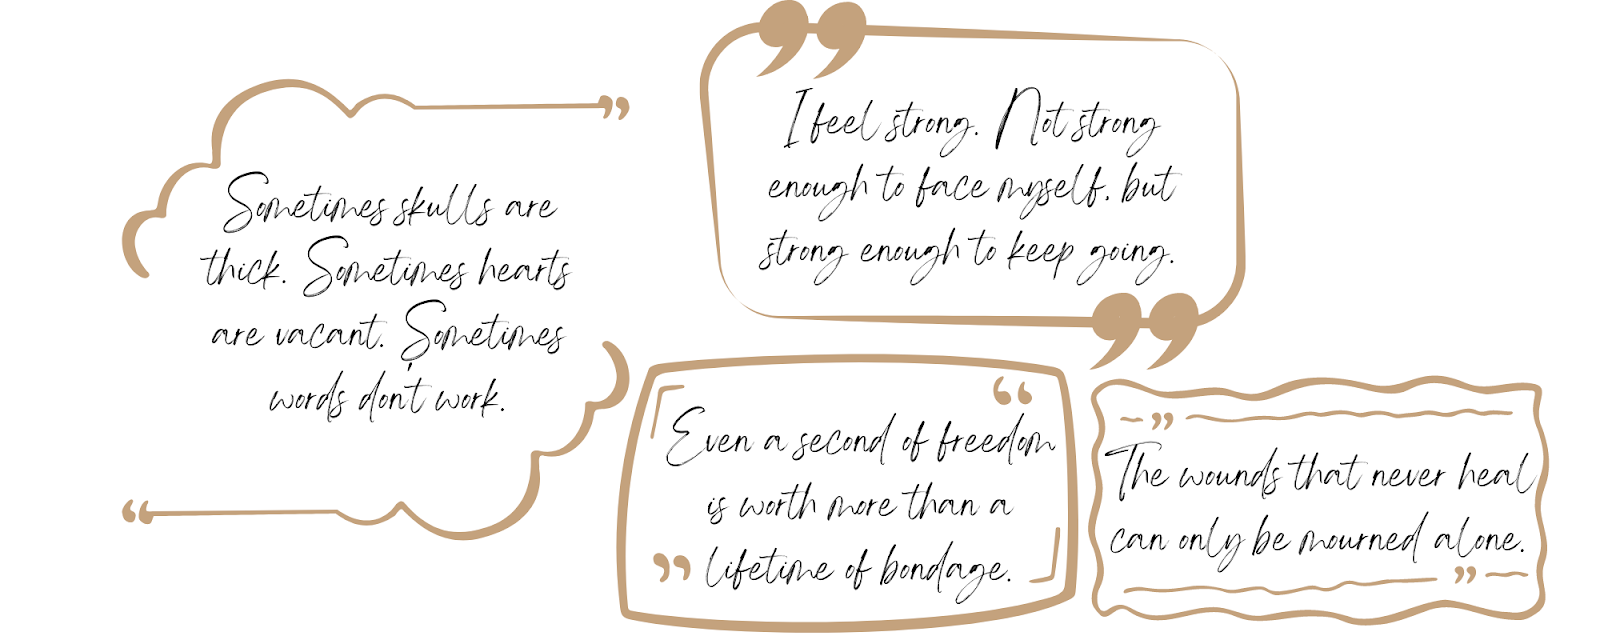 Sometimes skulls are
thick. Sometimes hearts
are vacant. Sometimes
words don't work.
I feel strong. Not strong
enough to face myself, but
strong enough to keep going.
Even a second of freedom
is worth more than a
lifetime of bondage.
The wounds that never heal
can only be mourned alone.